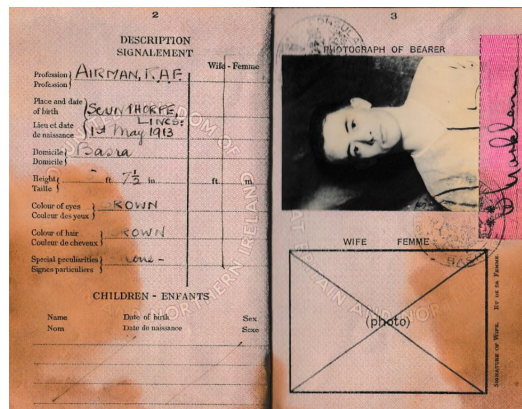 2
DESCRIPTION
SIGNALEMENT
Wife - Femme
Profession
Profession
AIRMAN, R.A.F.
Place and date
of birth
SCUNTHORPE,
LINCS.
Lieu et date
de naissance
1st May 1913
Domicile
Domicile
Basra
Height
Taille
ft. 7½ in
ft. m.
Colour of eyes
Couleur des yeux
ROWN
Colour of hair
Couleur de cheveux
ROWN
Special peculiarities
Signes particuliers
none -
CHILDREN - ENFANTS
Name Date of birth Sex
Nom Date de naissance Sexe
3
PHOTOGRAPH OF BEARER
WIFE FEMME
(photo)
SIGNATURE OF WIFE. ET DE SA FEMME